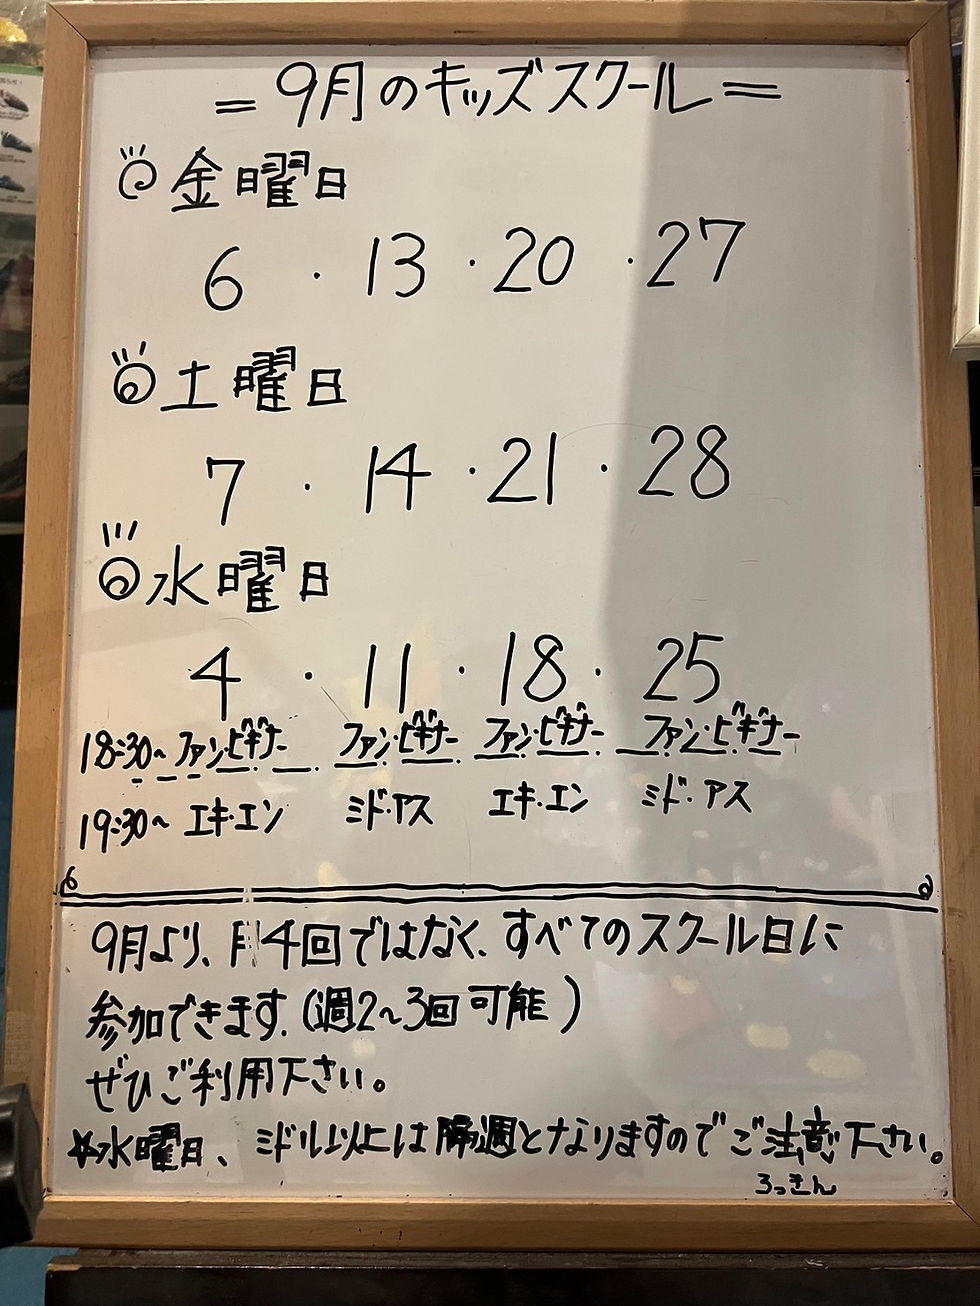 =9月のキッズスクール=
金曜日
6・13・20・27
土曜日
7・14・21・28
水曜日
4・11・18・25
18:30~ ファン・ビギナー ファン・ビギナー ファン・ビギナー ファン・ビギナー
19:30~ エキ・エン ミド・アス エキ・エン ミド・アス
9月より、月4回ではなく、すべてのスクール日に
参加できます.(週2~3回可能)
ぜひご利用下さい。
☆水曜日、ミドル以上は隔週となりますのでご注意下さい。
ろっきん